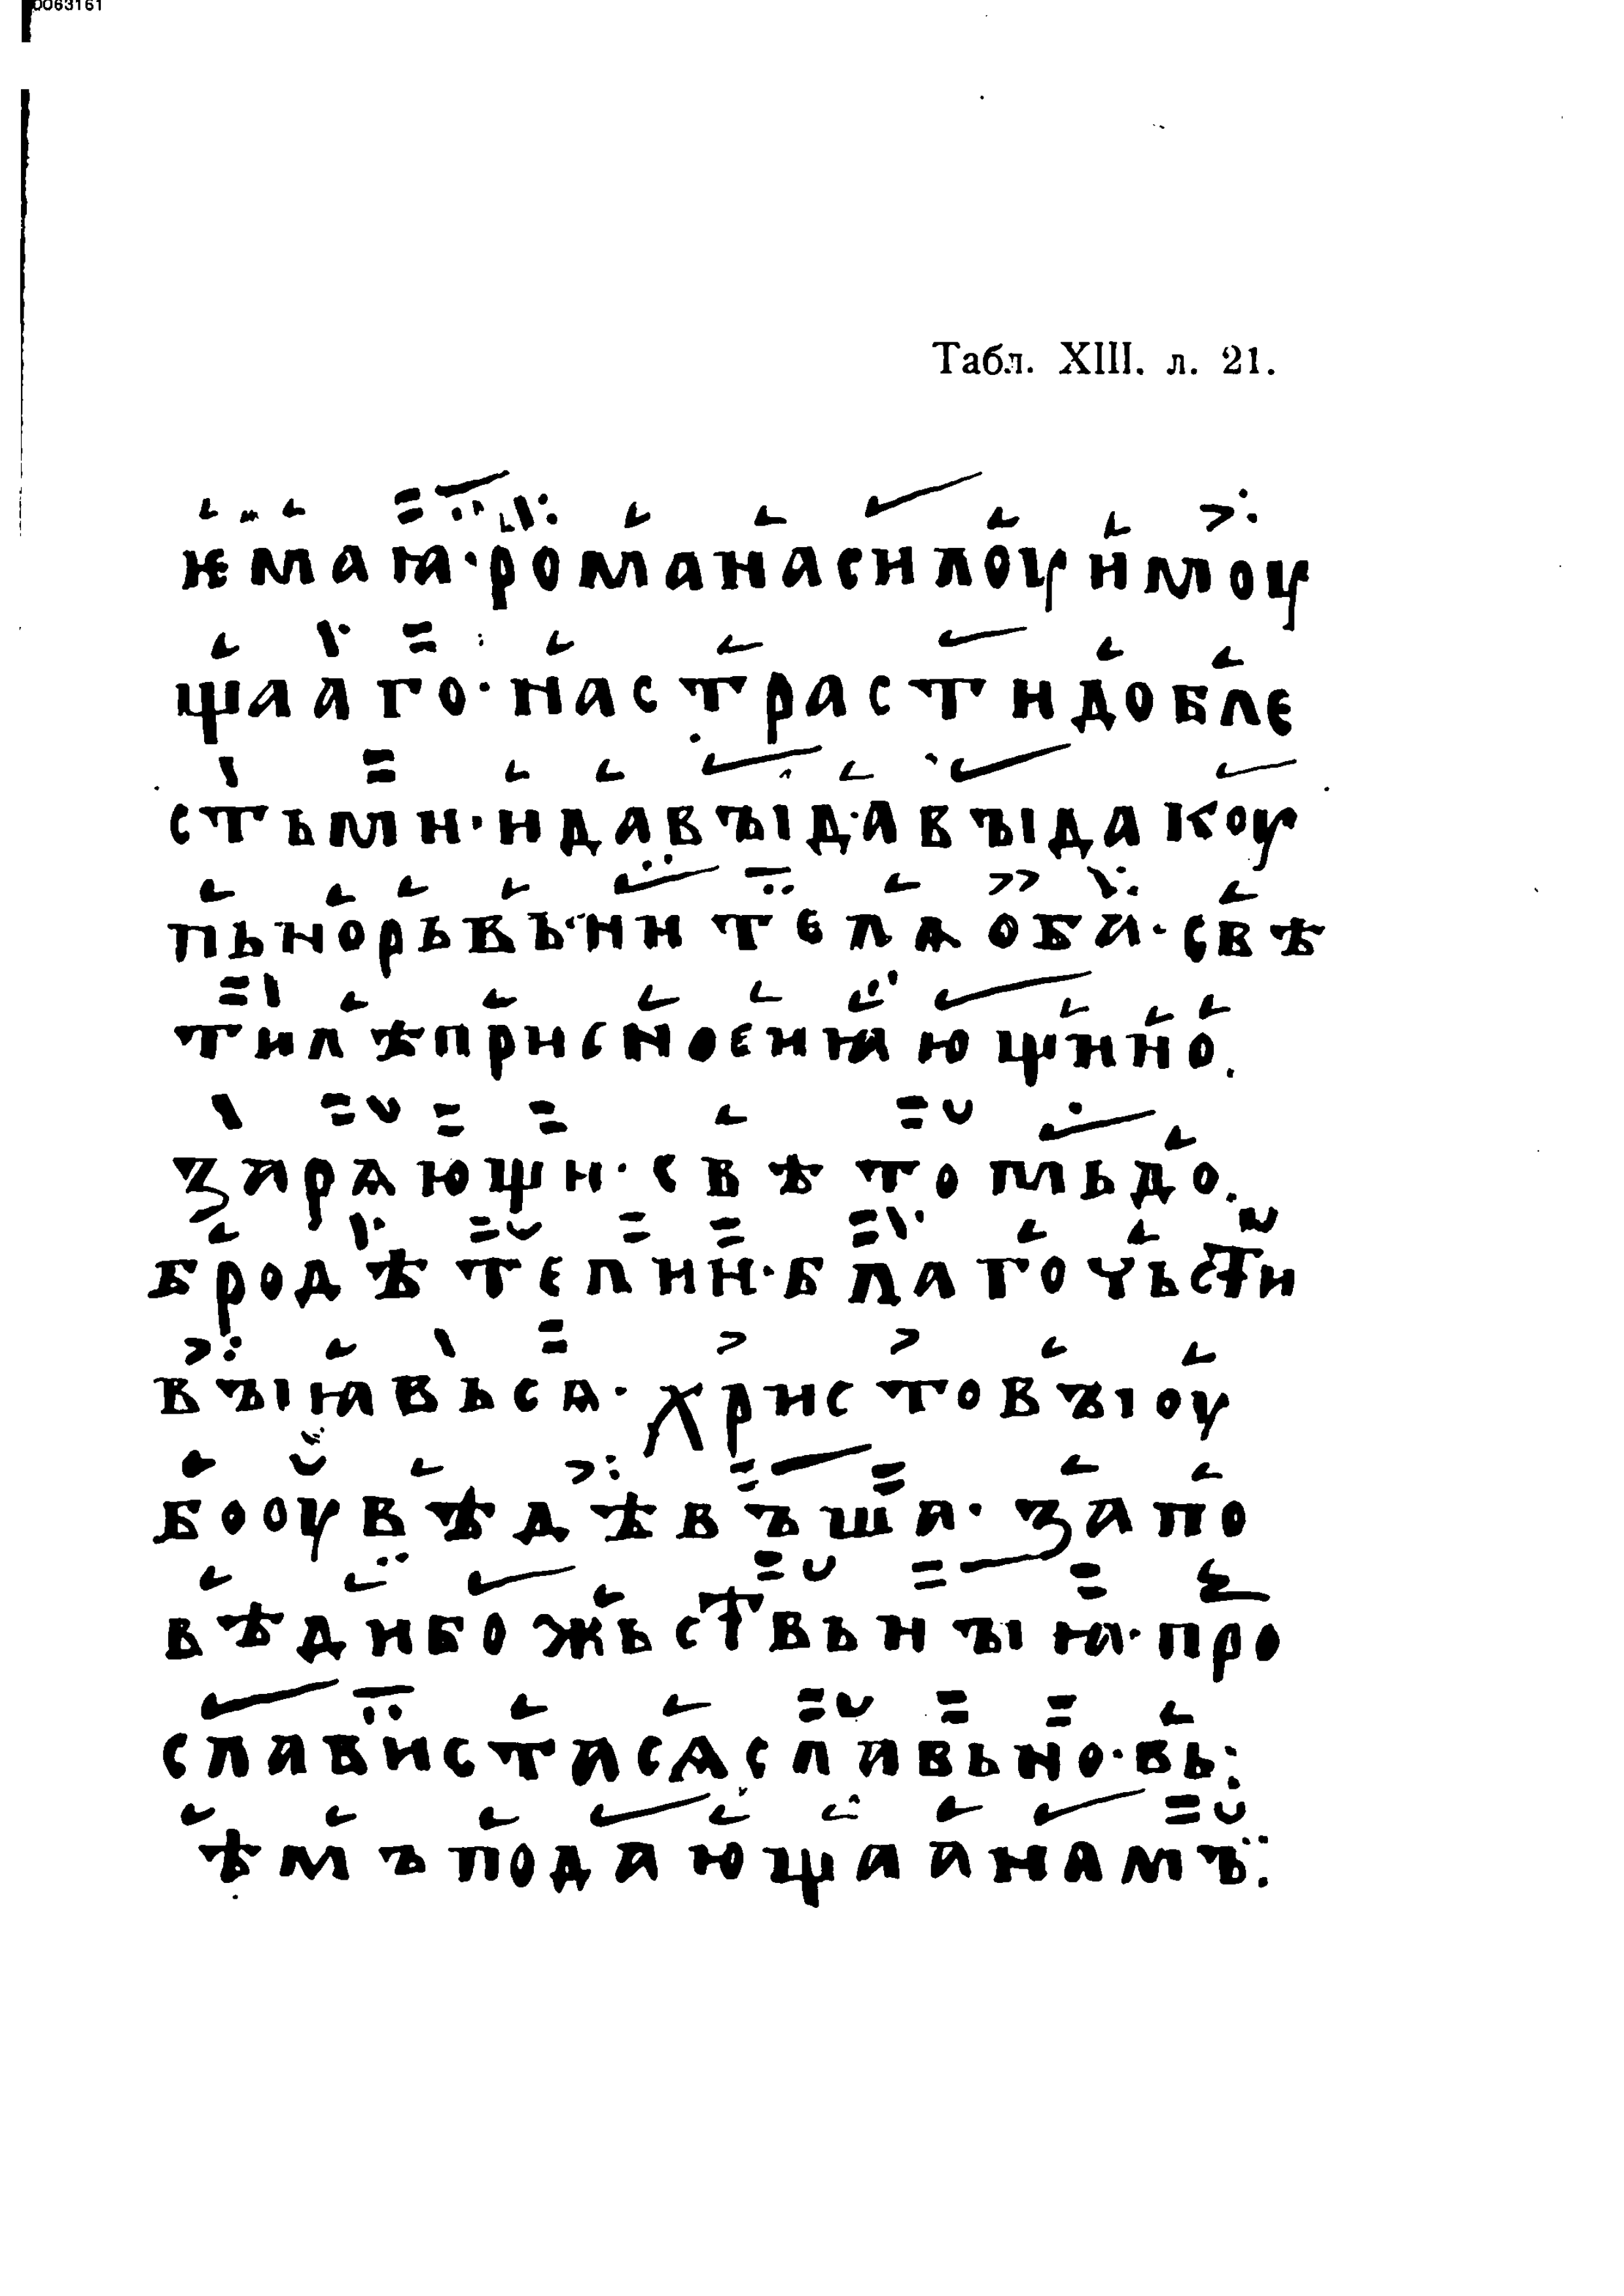 0063161
Табл. XIII. л. 21.
ѥмаꙗ·романасилоуимоу
щааго·настрастидобле
стьми·идавъід·авъідакоу
пьнорьвьнителѧоба·свѣ
тилѣприсносиꙗющиио.
зарѧющи·свѣтомьдо.
бродѣтелии·благочьсти
въіꙗвьсѧ·христовъіоу
бооувѣдѣвъша·запо
вѣдибожьствьнъіꙗ·про
славистасѧславьно·вь:
ѣмъподающааанамъ: